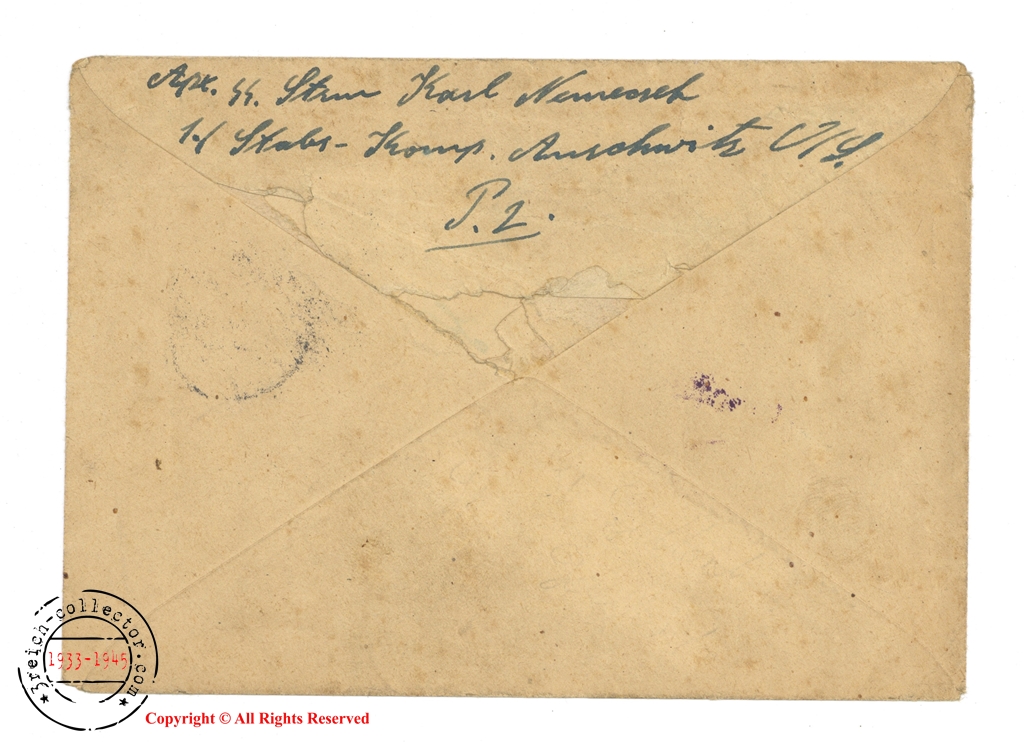 Abs. SS. Strm Karl Nemecsek
1./ Stabs-Komp. Auschwitz O/S.
P.2.
3reich-collector.com
1933-1945
Copyright © All Rights Reserved